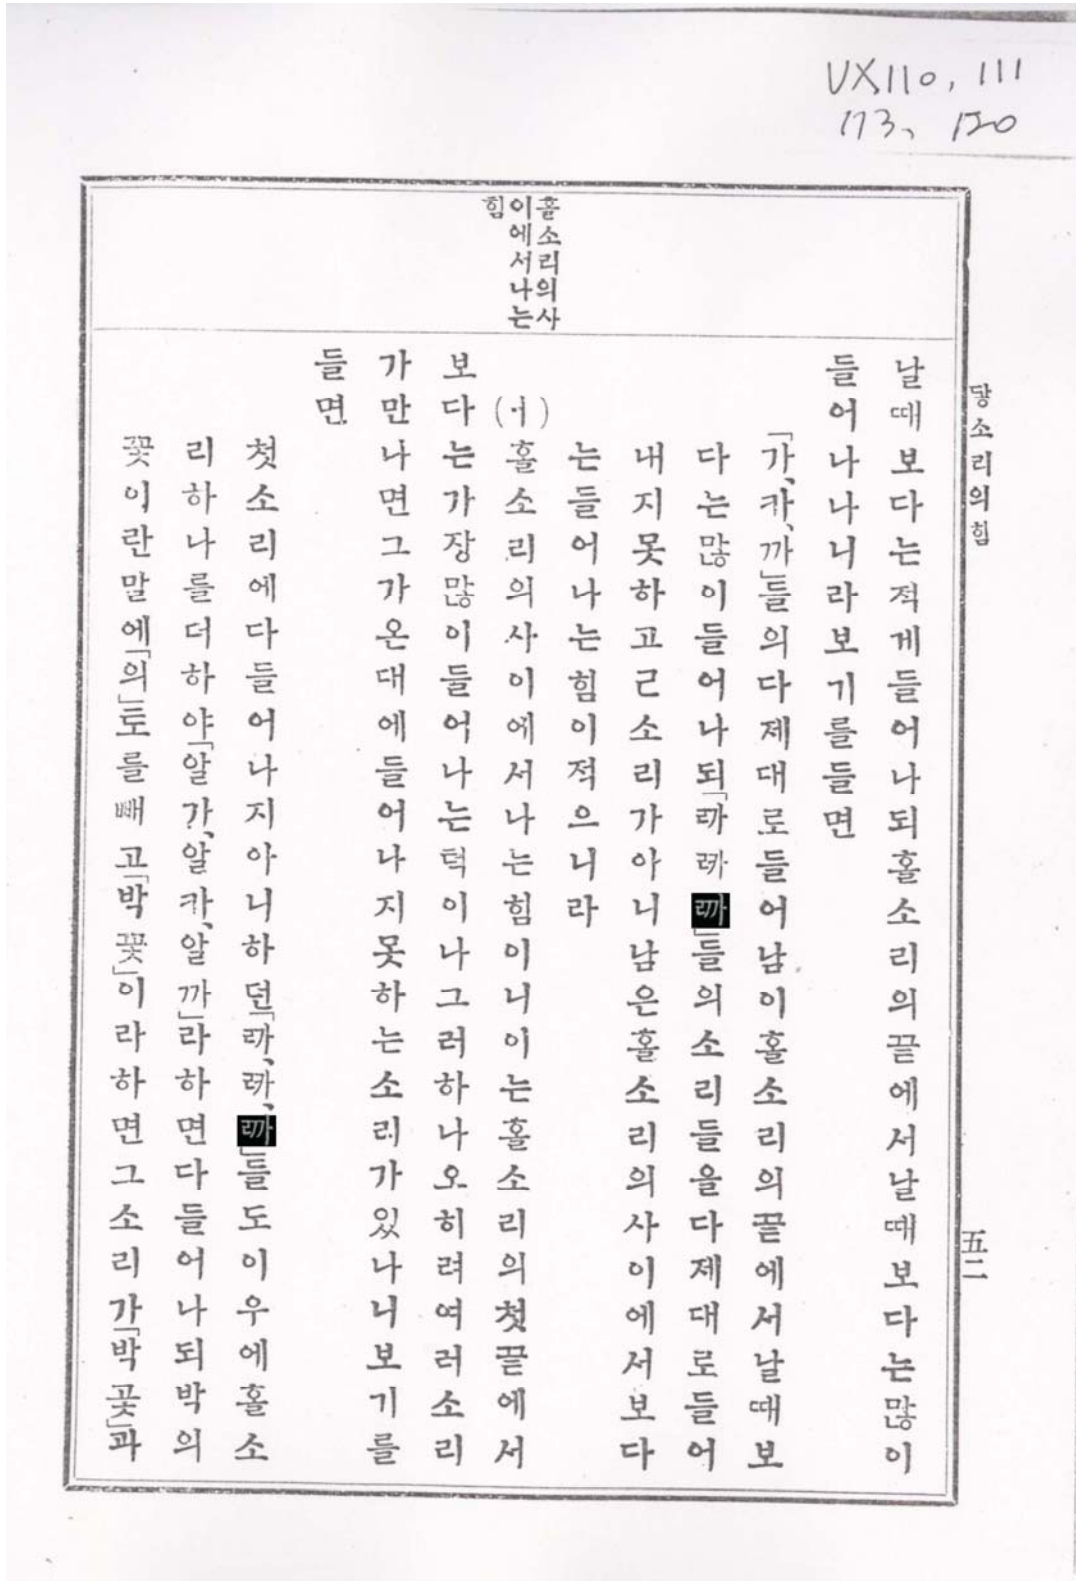 UX110, 111
120
닿소리의힘
五二
홀소리의사
이에서나는
힘
날때보다는적게들어나되홀소리의끝에서날때보다는많이
들어나나니라보기를들면
「가、카、까」들의다제대로들어남이홀소리의끝에서날때보
다는많이들어나되「ꥤᅡ ꥮᅡ ꥥᅡ」들의소리들을다제대로들어
내지못하고ㄹ소리가아니남은홀소리의사이에서보다
는들어나는힘이적으니라
(ㅓ)홀소리의사이에서나는힘이니이는홀소리의첫끝에서
보다는가장많이들어나는턱이나그러하나오히려여러소리
가만나면그가온대에들어나지못하는소리가있나니보기를
들면
첫소리에다들어나지아니하던「ꥤᅡ、ꥮᅡ、ꥥᅡ」들도이우에홀소
리하나를더하야「알가、알카、알까」라하면다들어나되박의
꽃이란말에「의」토를빼고「박꽃」이라하면그소리가「박곷」과